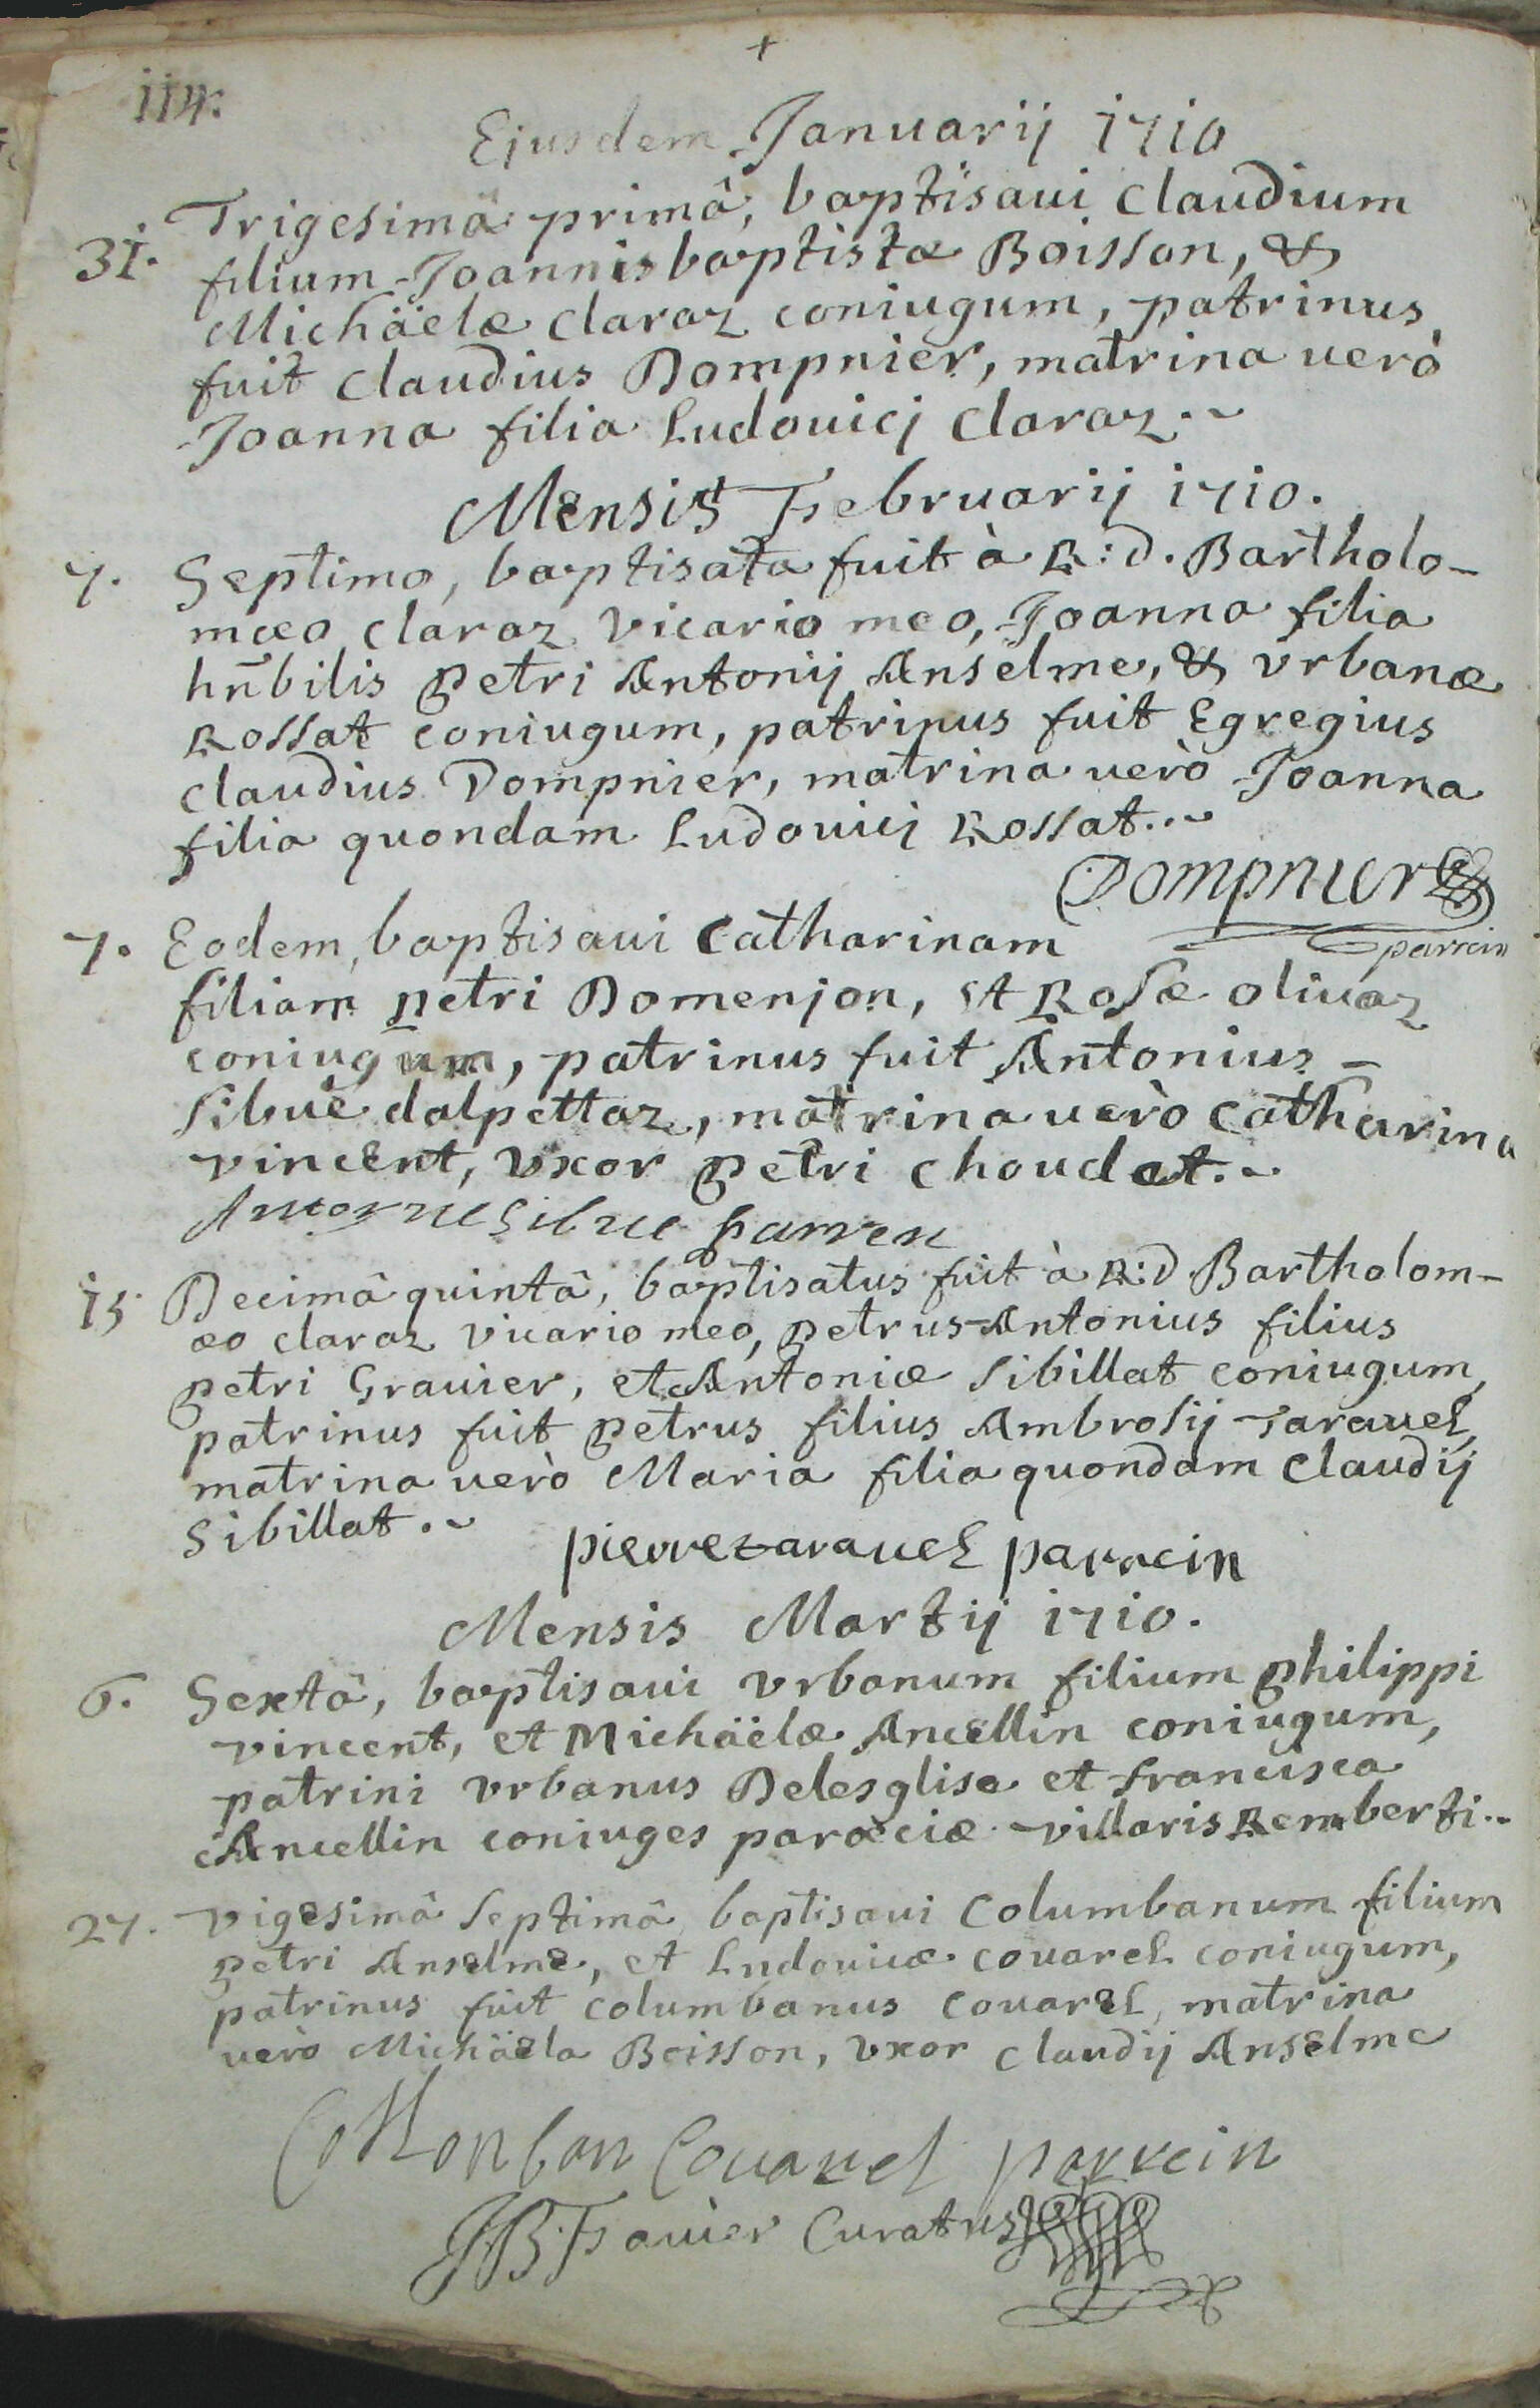 +
114.
Ejusdem Januarij 1710
31. Trigesimâ primâ, baptisaui Claudium
filium Joannisbaptistæ Boisson, &
Michäelæ Claraz coniugum, patrinus
fuit Claudius Dompnier, matrina uerò
Joanna filia Ludouicj Claraz.~
Mensis Februarij 1710.
7. Septimo, baptisata fuit à R:d. Bartholo-
mæo Claraz Vicario meo, Joanna filia
hñbilis Petri Antonij Anselme, & Vrbanæ
Rossat coniugum, patrinus fuit Egregius
Claudius Dompnier, matrina uerò Joanna
filia quondam Ludouicj Rossat..~
Dompnier
parrein
7. Eodem, baptisaui Catharinam
filiam Petri Domenjon, et Rosæ oliuaz
coniugum, patrinus fuit Antonius -
Sibué dalpettaz, matrina uerò Catharina
vincent, Vxor Petri Choudet.~
Antoynne Sibue parren
15 Decimâ quintâ, baptisatus fuit à R:d Bartholom-
æo Claraz Vicario meo, Petrus-Antonius filius
Petri Grauier, et Antoniæ Sibillat coniugum,
patrinus fuit Petrus filius Ambrosij Tarauel,
matrina uerò Maria filia quondam Claudij
Sibillat.~
pierre tarauel parrein
Mensis Martij 1710.
6. Sextâ, baptisaui Vrbanum filium Philippi
vincent, et Michäelæ Ancellin coniugum,
patrini Vrbanus Delesglise et Francisca
Ancellin coniuges parœciæ Villaris Remberti..
27. Vigesimâ Septimâ baptisaui Columbanum filium
Petri Anselme, et Ludouicæ Couarel coniugum,
patrinus fuit Columbanus Couarel, matrina
uerò Michäela Boisson, Vxor Claudij Anselme
Collonban Couarel parrein
JB Fauier Curatus